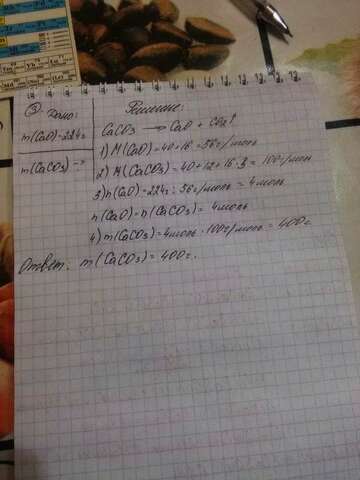 ③ Дано:
m(CaO)=224г
m(CaCO3) -?
Решение:
CaCO3 → CaO + CO2↑
1) M(CaO)=40+16=56г/моль
2) M(CaCO3)=40+12+16·3=100г/моль
3) n(CaO)=224г:56г/моль=4моль
n(CaO)=n(CaCO3)=4моль
4) m(CaCO3)=4моль·100г/моль=400г.
Ответ: m(CaCO3)=400г.